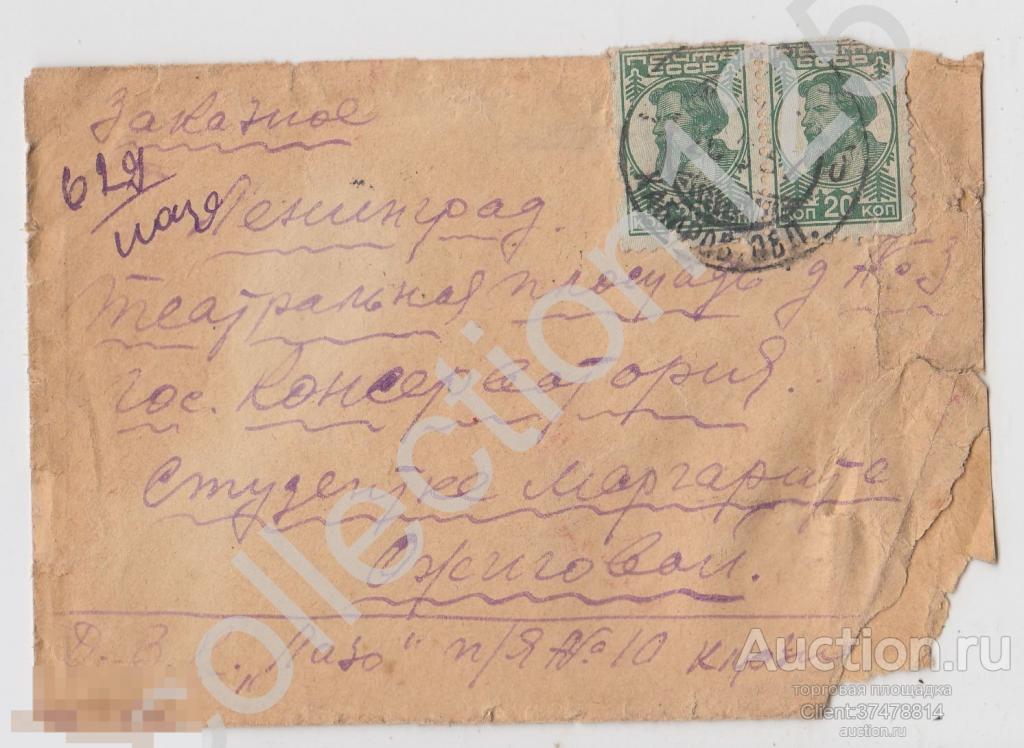 Заказное
629
Лазо
Ленинград.
Театральная площадь д № 3
гос. Консерватория.
Студентке Маргарите
Ожиговой.
Д. В. К. „Лазо" п/я № 10
ПОЧТА ПОЧТА
СССР СССР
20 КОП
Collection125
Auction.ru
торговая площадка
Client:37478814
auction.ru